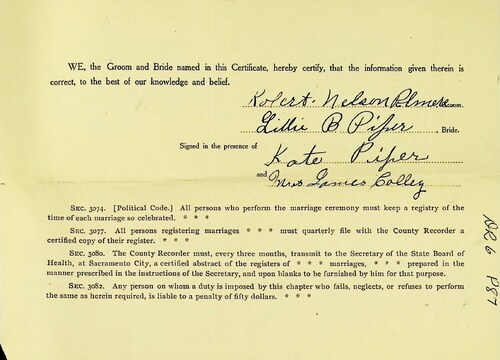 WE, the Groom and Bride named in this Certificate, hereby certify, that the information given therein is
correct, to the best of our knowledge and belief.
Robert Nelson Elmer Groom.
Lillie B Piper, Bride.
Signed in the presence of
Kate Piper
and
Mrs James Colley
SEC. 3074. [Political Code.] All persons who perform the marriage ceremony must keep a registry of the
time of each marriage so celebrated. * * *
SEC. 3077. All persons registering marriages * * * must quarterly file with the County Recorder
a certified copy of their register. * * *
SEC. 3080. The County Recorder must, every three months, transmit to the Secretary of the State Board of
Health, at Sacramento City, a certified abstract of the registers of * * * marriages, * * * prepared in the
manner prescribed in the instructions of the Secretary, and upon blanks to be furnished by him for that purpose.
SEC. 3082. Any person on whom a duty is imposed by this chapter who fails, neglects, or refuses to perform
the same as herein required, is liable to a penalty of fifty dollars. * * *